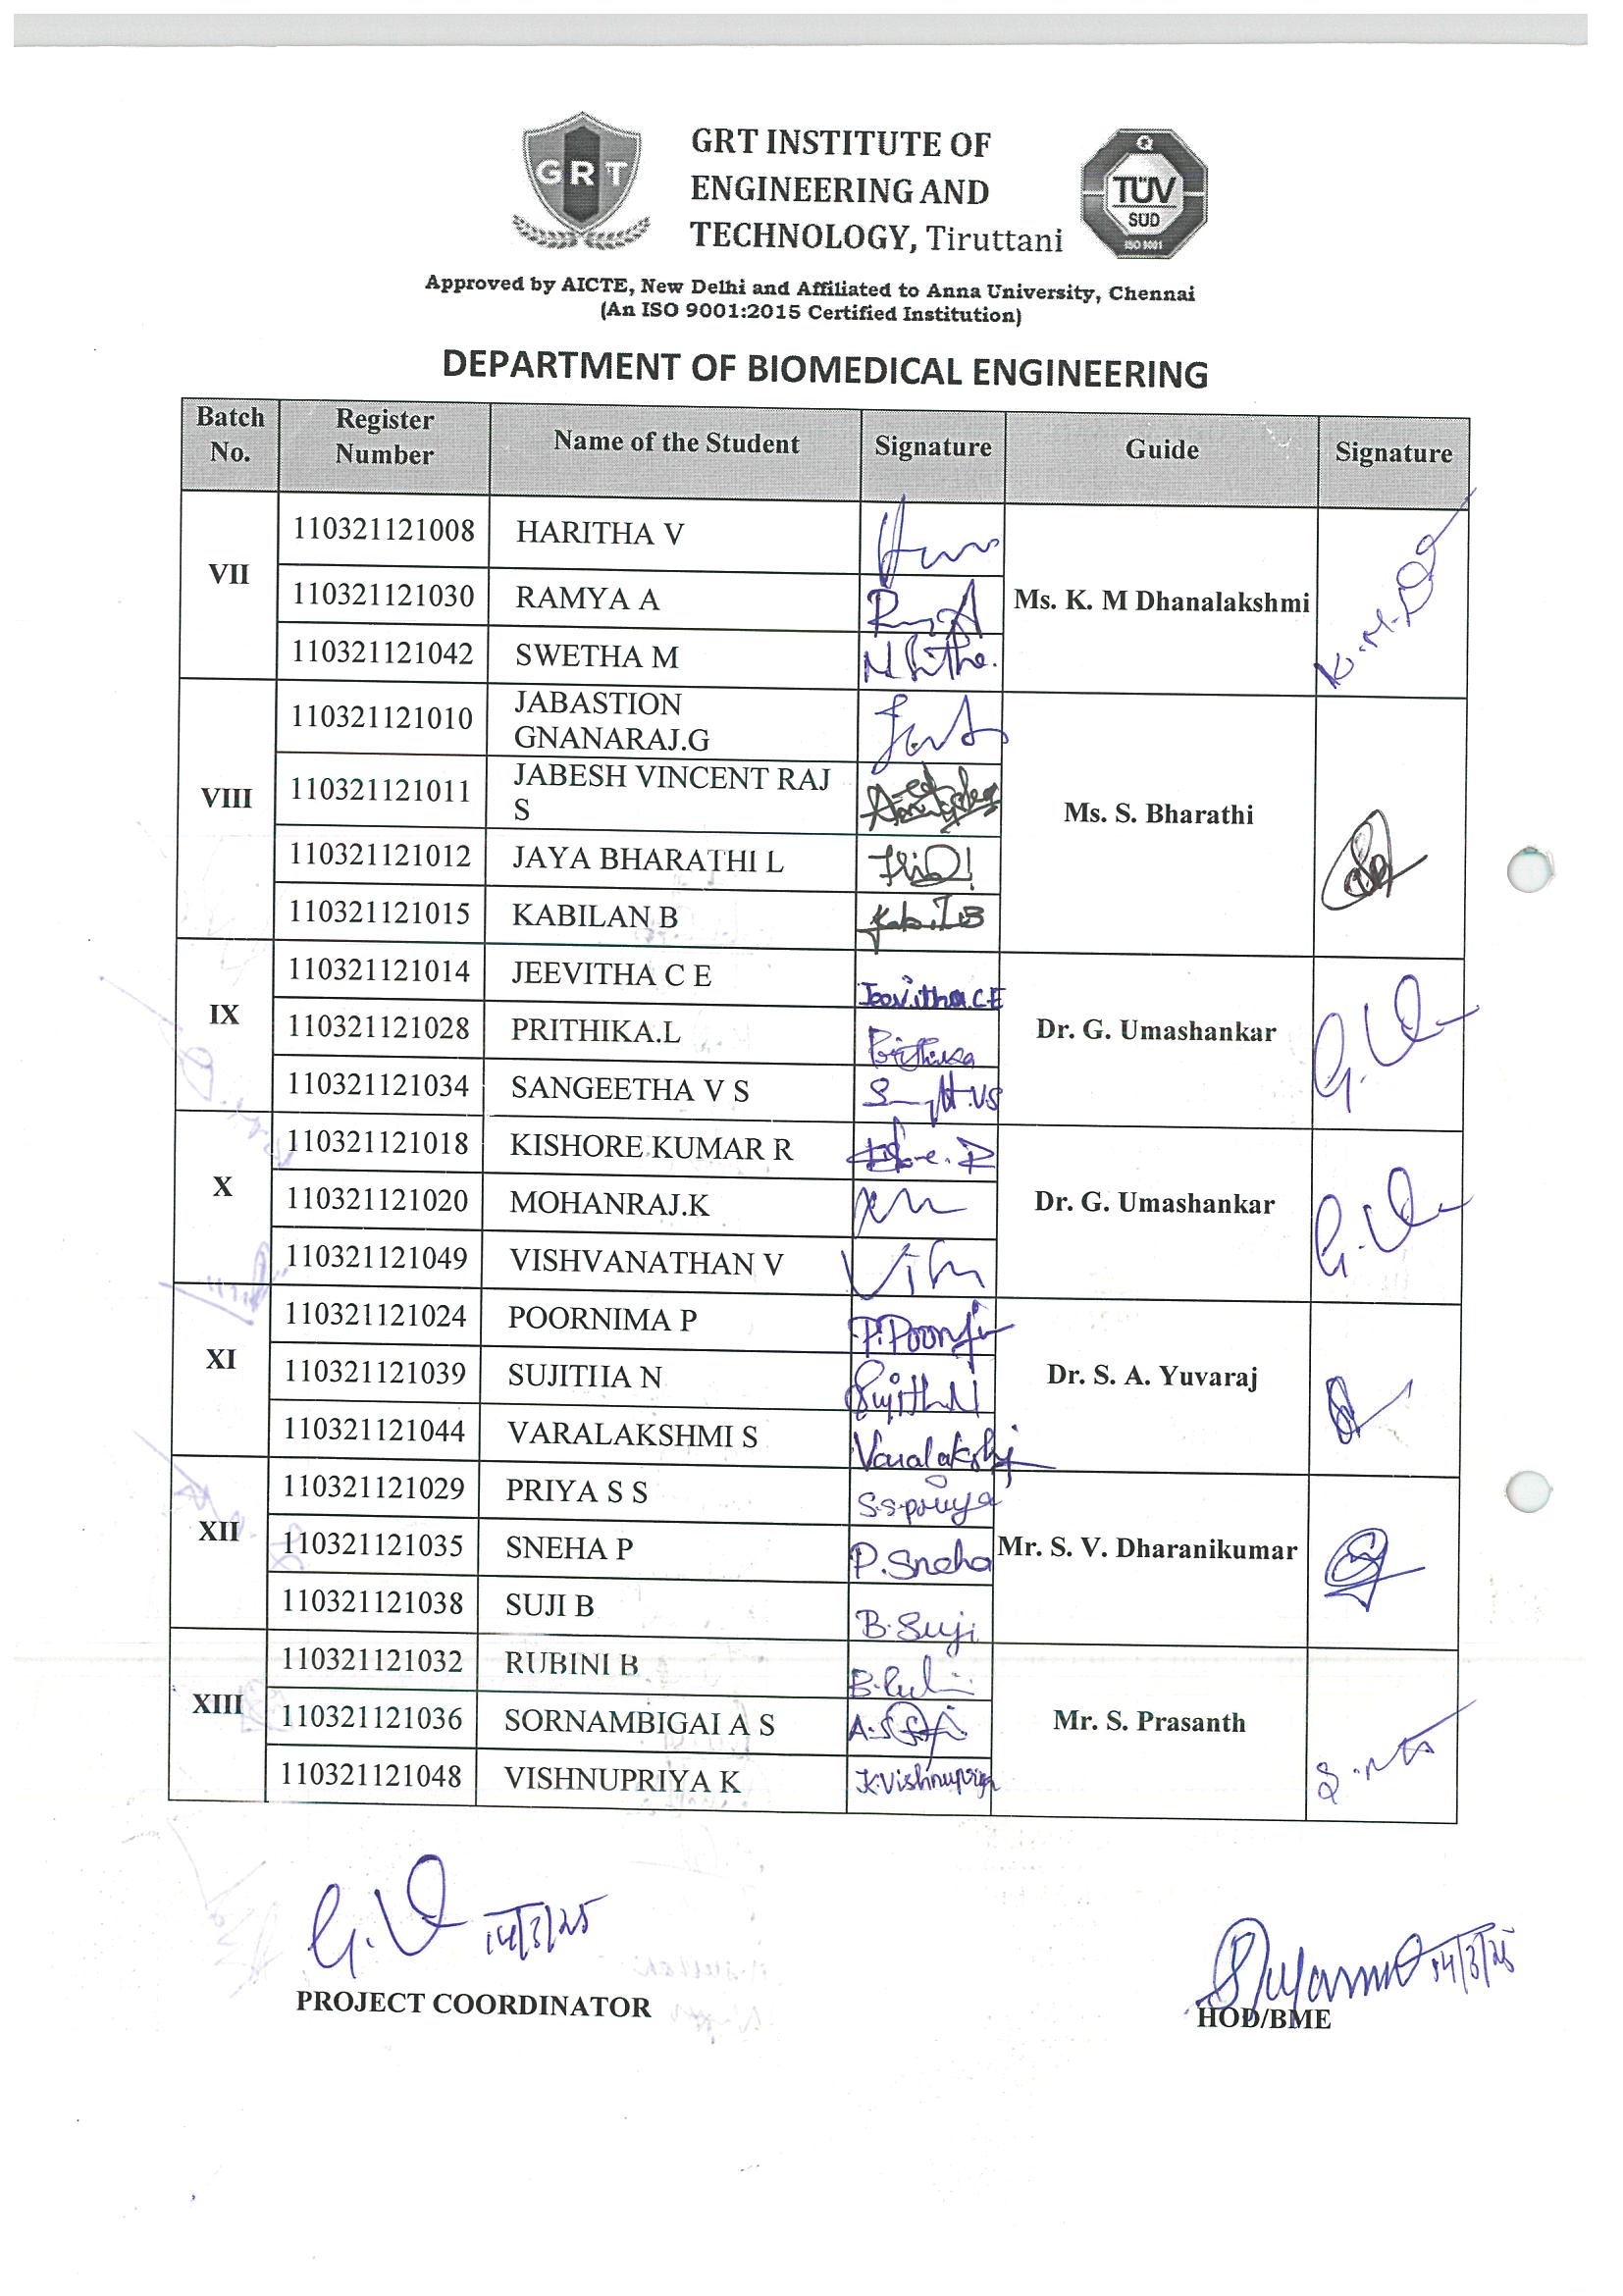 GRT
GRT INSTITUTE OF
ENGINEERING AND
TECHNOLOGY, Tiruttani
TÜV
SÜD
ISO 9001
Approved by AICTE, New Delhi and Affiliated to Anna University, Chennai
(An ISO 9001:2015 Certified Institution)
DEPARTMENT OF BIOMEDICAL ENGINEERING
Batch No. Register Number Name of the Student Signature Guide Signature
VII
110321121008 HARITHA V
Ms. K. M Dhanalakshmi
110321121030 RAMYA A
110321121042 SWETHA M
VIII
110321121010 JABASTION GNANARAJ.G
110321121011 JABESH VINCENT RAJ S
Ms. S. Bharathi
110321121012 JAYA BHARATHI L
110321121015 KABILAN B
IX
110321121014 JEEVITHA C E Jeevitha C.E
110321121028 PRITHIKA.L Prithika
Dr. G. Umashankar
110321121034 SANGEETHA V S
X
110321121018 KISHORE KUMAR R
110321121020 MOHANRAJ.K
Dr. G. Umashankar
110321121049 VISHVANATHAN V
XI
110321121024 POORNIMA P
110321121039 SUJITIIA N
Dr. S. A. Yuvaraj
110321121044 VARALAKSHMI S
XII
110321121029 PRIYA S S S.S.priya
110321121035 SNEHA P P.Sneha
Mr. S. V. Dharanikumar
110321121038 SUJI B B.Suji
XIII
110321121032 RUBINI B
110321121036 SORNAMBIGAI A S
Mr. S. Prasanth
110321121048 VISHNUPRIYA K K.Vishnupriya
14/3/25
14/3/25
PROJECT COORDINATOR
HOD/BME